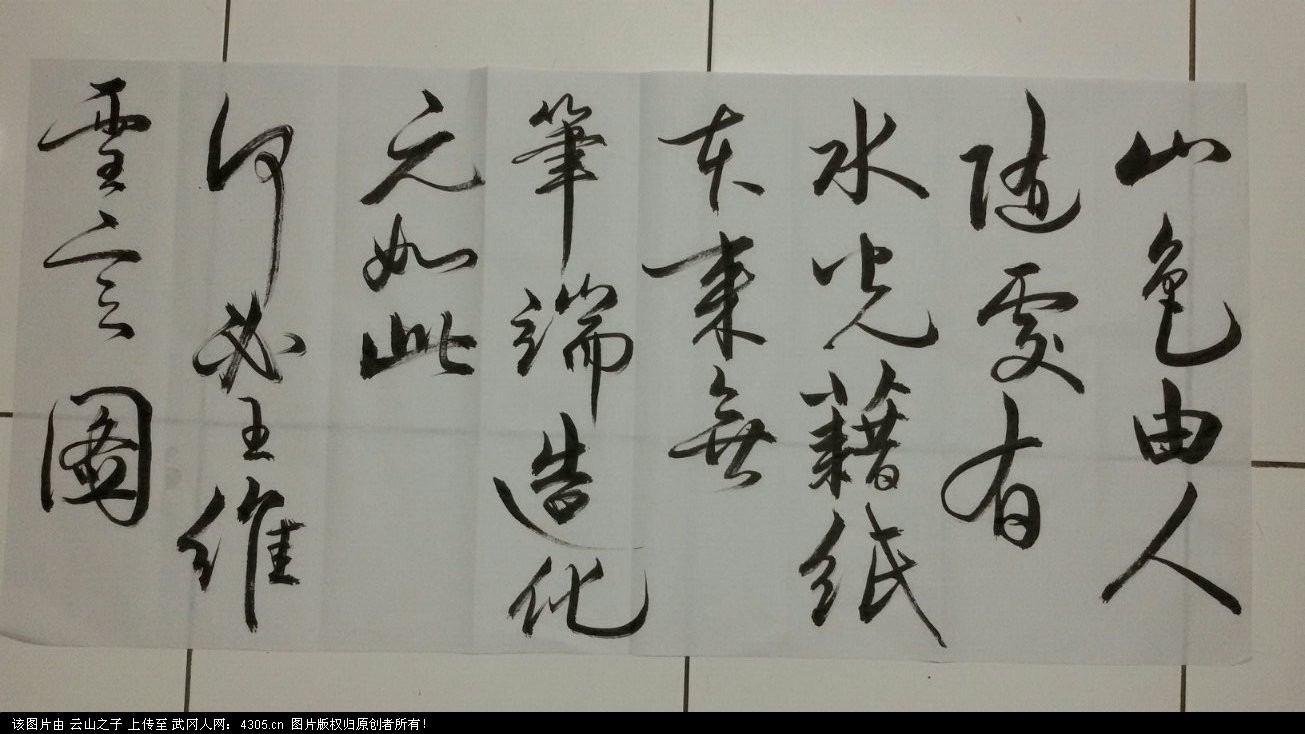 山色由人
随處有
水光藉紙
本來無
筆端造化
元如此
何必王維
言圖
该图片由 云山之子 上传至 武冈人网: 4305.cn 图片版权归原创者所有!